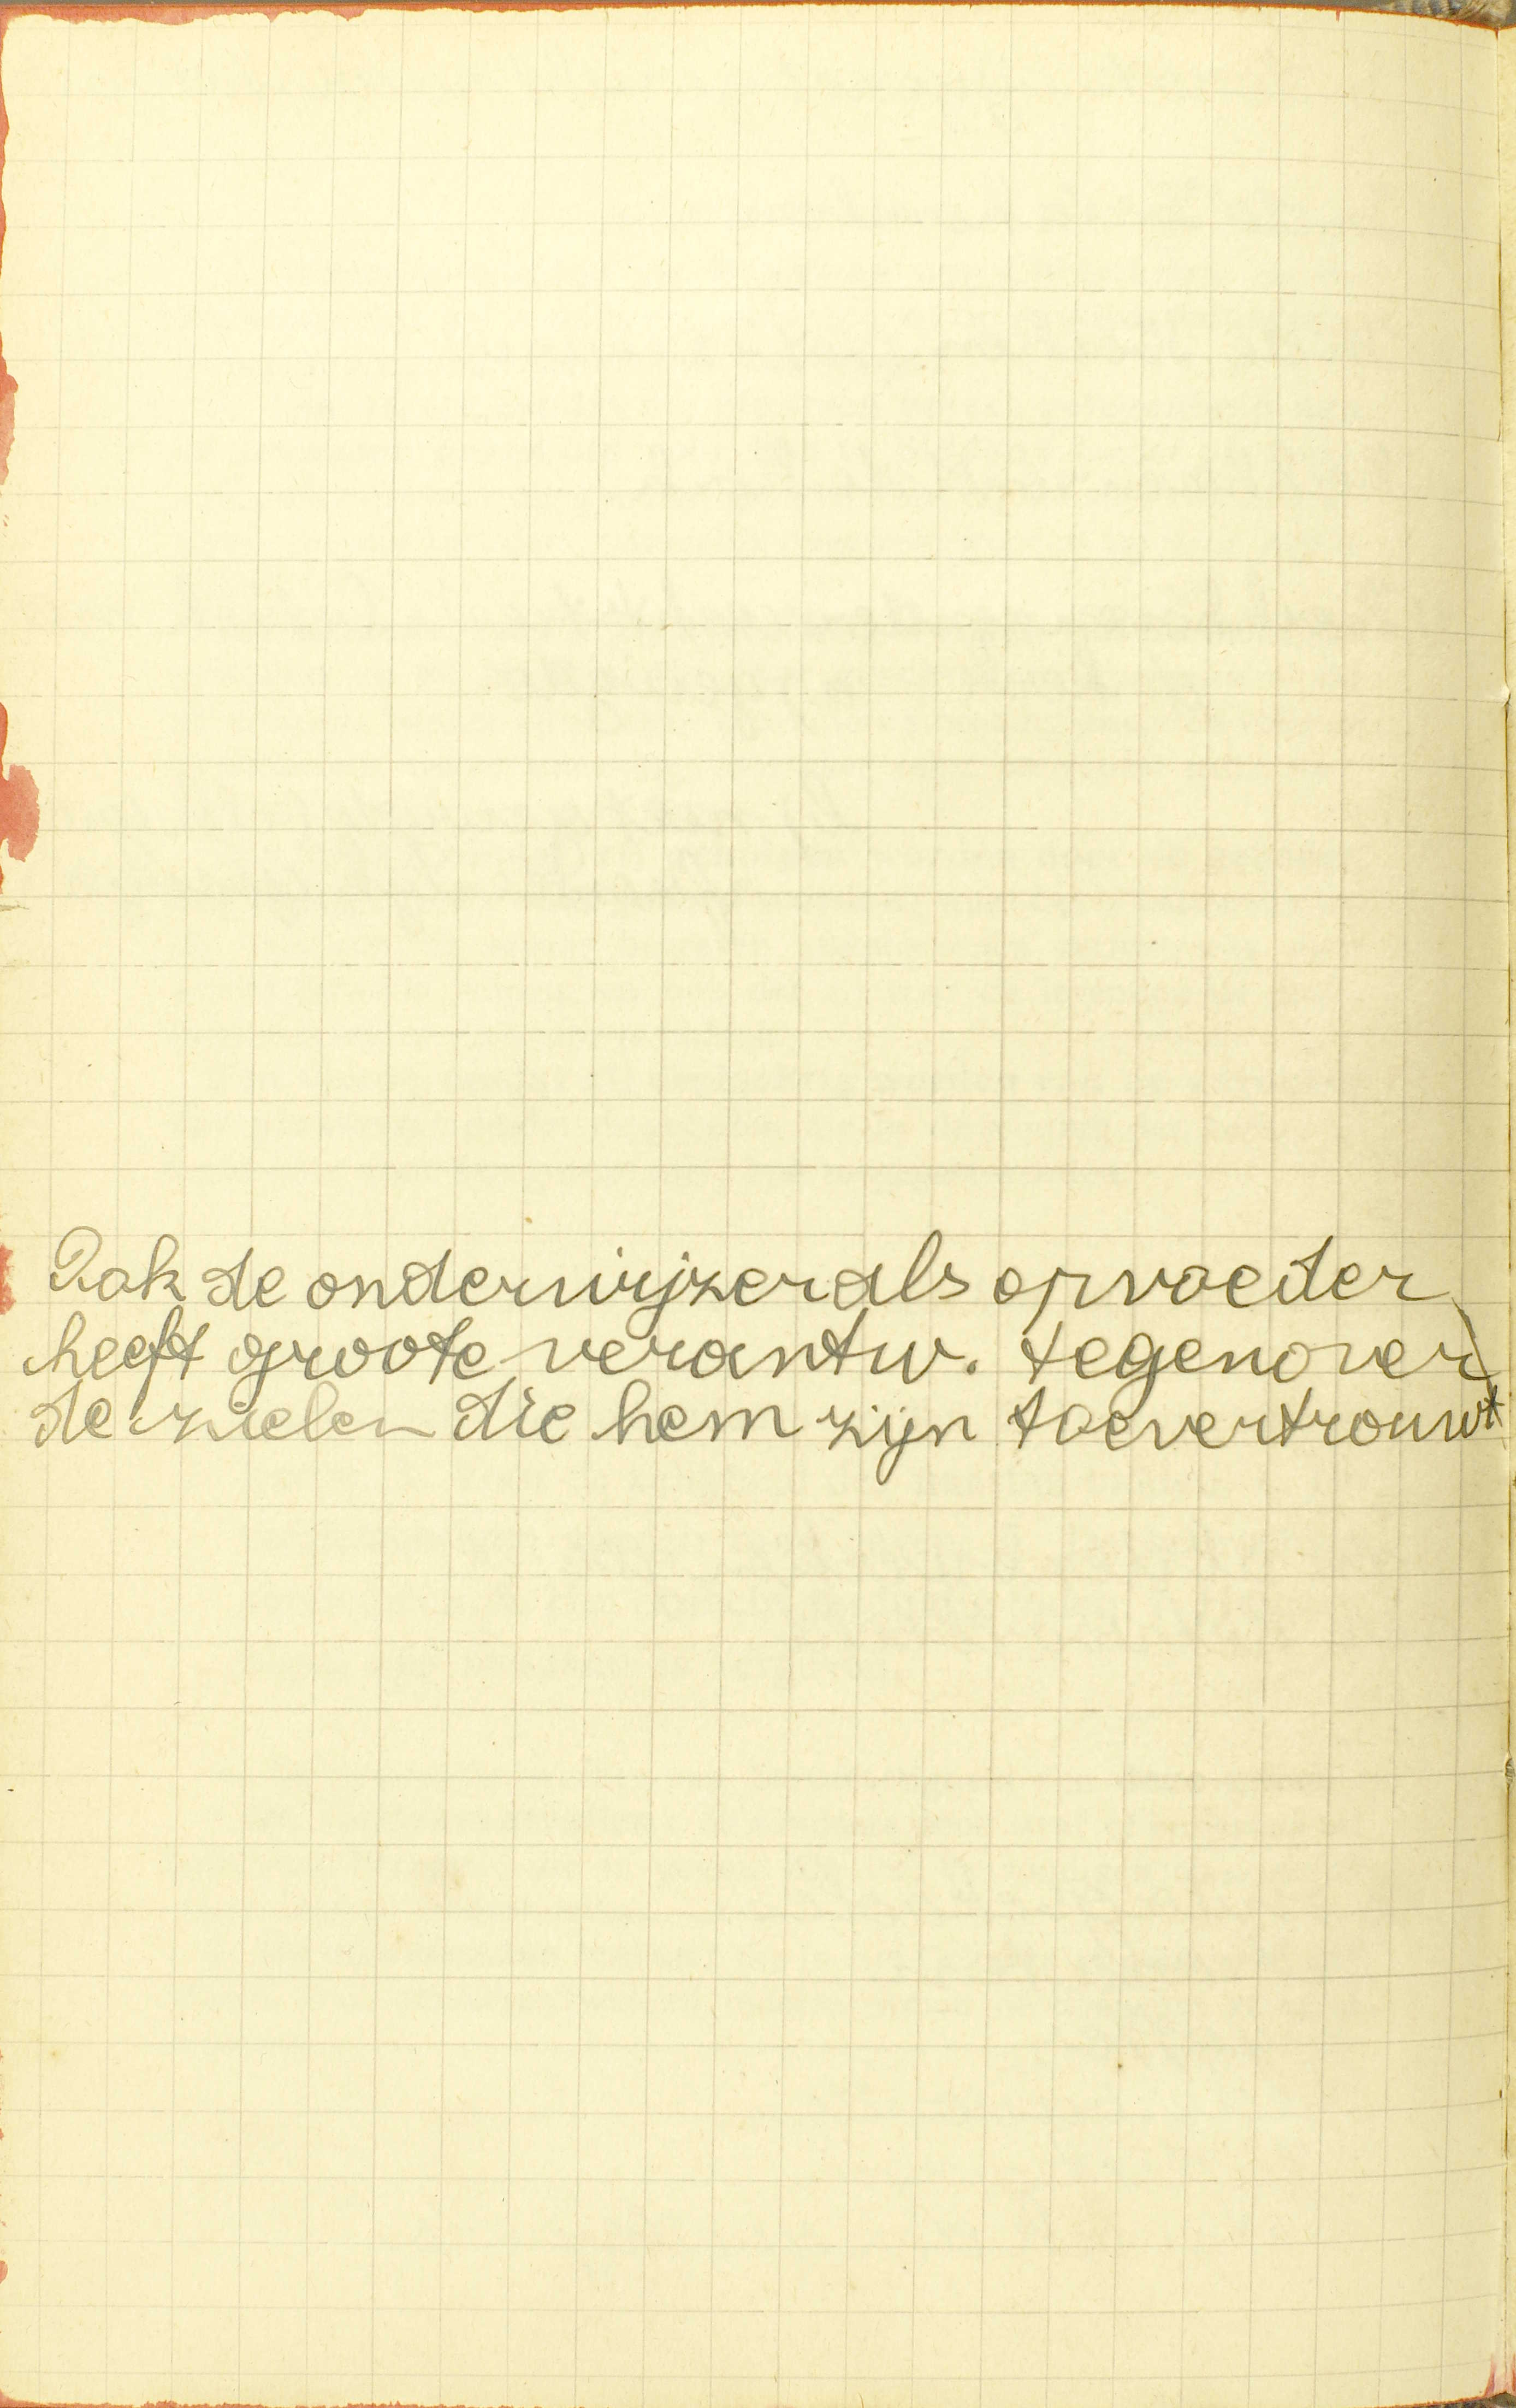 Ook de onderwijzer als opvoeder
heeft groote verantw. tegenover
de zielen die hem zijn toevertrouwt